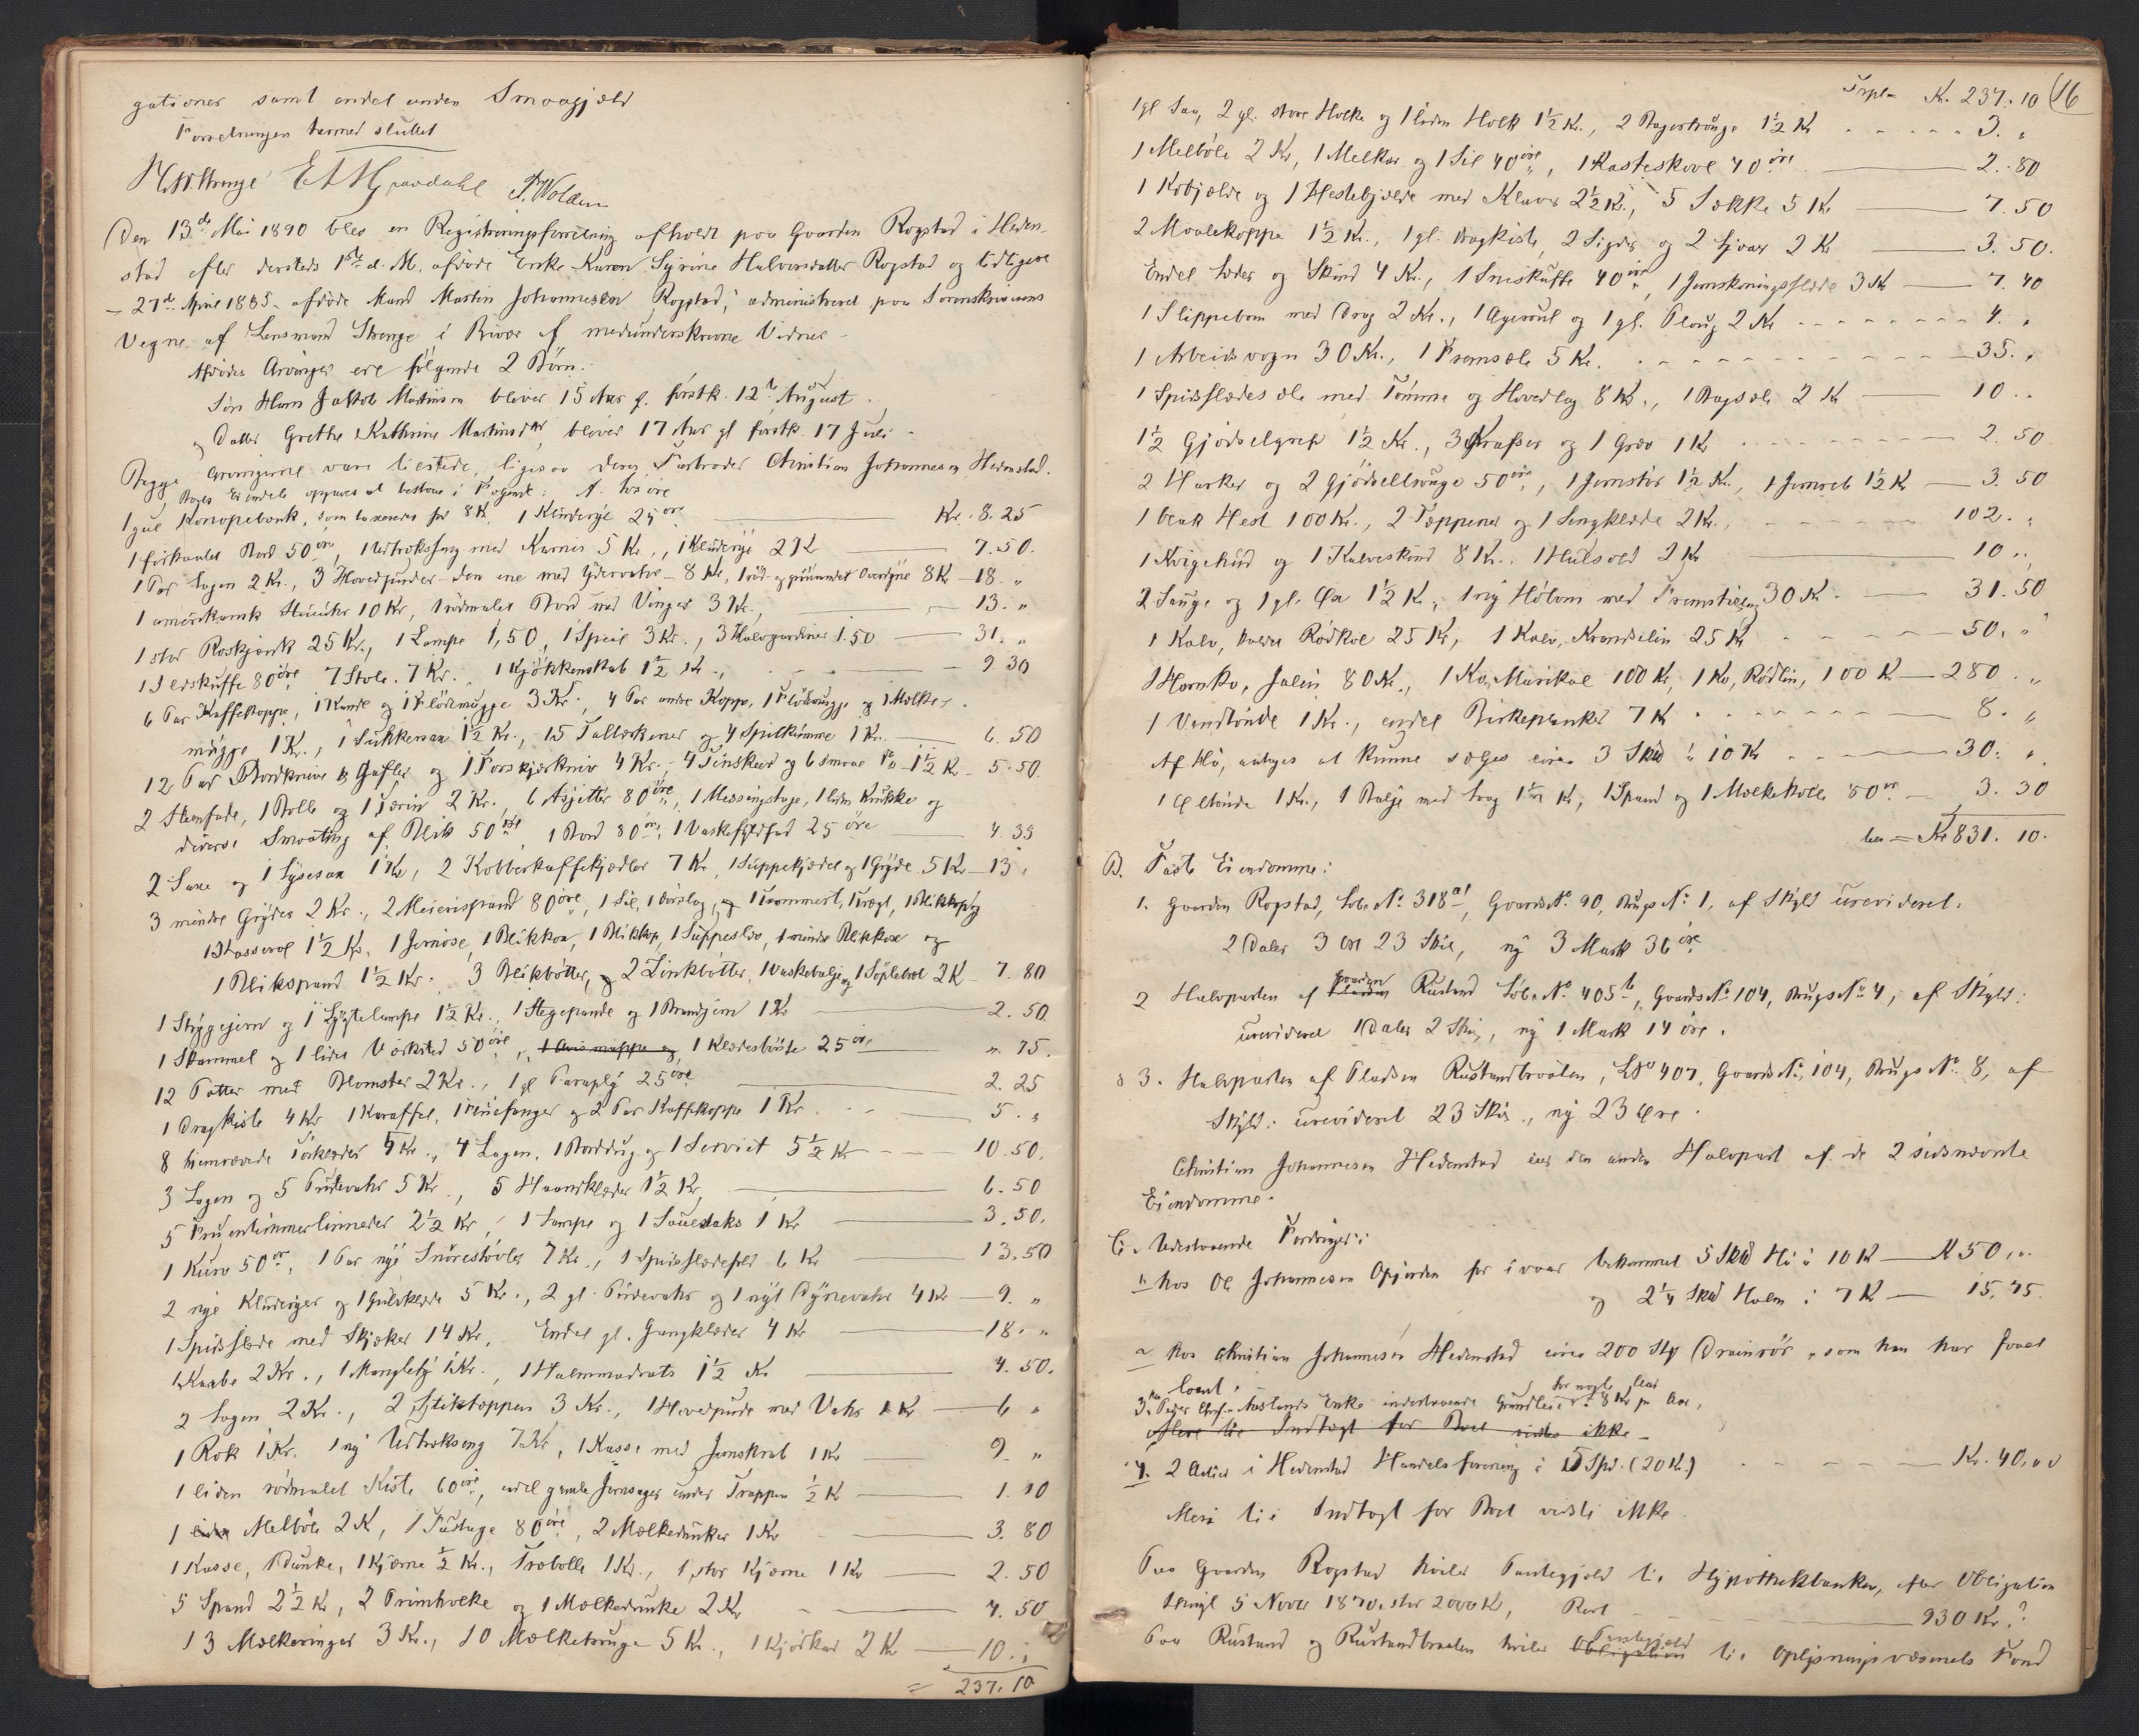 gationer samt endel anden Smaagjæld
Forretningen hermed sluttet
Strenge E A H Grøvdahl P. Wolden
Den 13de Mai 1890 blev en Registreringsforretning afholdt paa Gaarden Rogstad i Heden-
stad efter dersteds 1ste d. M. afdøde Enke Karen Syrine Halvorsdatter Rogstad og tidligere
- 27de April 1885 - afdøde Mand Martin Johannesen Rogstad; administreret paa Sorenskriverens
Vegne af Lensmand Strenge i Bivær af medunderskrevne Vidner -
Afdødes Arvinger ere følgende 2 Børn:
Søn Hans Jakob Martinsen bliver 15 Aar g. førstk. 12te August.
og Datter Grethe Kathrine Martinsdtr, bliver 17 Aar gl førstk. 17 Juli -
Begge Arvingerne vare tilstede, ligesaa deres Farbroder Christian Johannesen Hedenstad.
Boets Eiendele opgaves at bestaae i Følgende: A. Løsøre
1 gul Kanapebænk, som taxeredes for 8 Kr. 1 Kluderye 25 øre Kr. 8. 25
1 firkantet Bord 50 øre, 1 Udtrækseng med Karnis 5 Kr., 1 Kluderye 2 Kr 7. 50.
1 Par Lagen 2 Kr., 3 Hovedpuder - den ene med Ydervahr - 8 Kr, 1 rød- og grønrandet Overdyne 8 Kr - 18. "
1 amerikansk Stueuhr 10 Kr, 1 rødmalet Bord med Vinger 3 Kr., 13. "
1 stor Roskjænk 25 Kr., 1 Lampe 1,50, 1 Speil 3 Kr., 3 Halvgardiner 1.50 31. "
1 Ildskuffe 80 øre 7 Stole. 7 Kr. 1 Kjøkkenskab 1½ Kr., 9. 30
6 Par Kaffekoppe, 1 Kande og 1 Flødemugge 3 Kr. 4 Par andre Koppe, 1 Flødemugge og 1 Melke-
mugge 1 Kr., 1 Sukkersax 1½ Kr., 15 Tallerkener og 4 Spilkumme 1 Kr. 6. 50
12 Par Bordknive & Gafler og 1 Forskjærkniv 4 Kr., 4 Tinskeer og 6 smaae Do 1½ Kr - 5. 50.
2 Stenfade, 1 Bolle og 1 Terrin 2 Kr. 6 Asjetter 80 øre, 1 Messingstage, 1 liden Krukke og
diverse Smaating af Blik 50 øre, 1 Bord 80 øre, 1 Vaskefad 25 øre 4. 35
2 Saxe og 1 Lysesax 1 Kr, 2 Kobberkaffekjedler 7 Kr, 1 Suppekjedel og 1 Gryde 5 Kr - 13.
3 mindre Gryder 2 Kr., 2 Meierispand 80 øre, 1 Sil, 1 Dørslag, 1 Tragt,
1 Kasserol 1½ Kr. 1 Jernøse, 1 Blikkar, 1 Blikkop, 1 Suppeslev, 1 mindre Blikkar og
1 Blikspand 1½ Kr. 3 Blikbøtter, og 2 Zinkbøtter, 1 Vaskebalje og 1 Søplebret 2 Kr 7. 80
1 Strygejern og 1 Lygtelampe 1½ Kr., 1 Stegepande og 1 Brandjern 1 Kr 2. 50.
1 Skammel og 1 lidet 50 øre, 1 Klædesbørste 25 øre ". 75.
12 Potter med Blomster 2 Kr., 1 gl Paraply 25 øre 2. 25
1 Dragkiste 4 Kr 1 Karaffel, 1 Fluefanger og 2 Par Kaffekoppe 1 Kr. 5. "
8 hjemvævede Tørklæder 5 Kr., 4 Lagen, 1 Borddug og 1 Serviet 5½ Kr 10. 50.
3 Lagen og 5 Pudevahr 5 Kr., 5 Haandklæder 1½ Kr 6. 50
5 Fruentimmerlinneder 2½ Kr, 1 Lampe og 1 Sauesaks 1 Kr 3. 50.
1 Kurv 50 øre, 1 Par nye Snørestøvler 7 Kr., 1 Spidsslædefeld 6 Kr 13. 50
2 nye Kluderyer og 1 Gulvklæde 5 Kr., 2 gl. Pudevahr og 1 nyt Dynevahr 4 Kr 9. "
1 Spidsslæde med Skjæker 14 Kr, Endel gl. Gangklæder 4 Kr 18. "
1 Kaabe 2 Kr., 1 Mangletøj 1 Kr., 1 Halmmadrats 1½ Kr 4. 50.
2 Lagen 2 Kr., 2 Stiktæppen 3 Kr., 1 Hovedpude med Vahr 1 Kr 6 "
1 Rok 1 Kr. 1 ny Udtrækseng 7 Kr, 1 Kasse med Jernskrab 1 Kr 9. "
1 liden rødmalet Kiste 60 øre, endel gamle Jernsager under Trappen ½ Kr 1. 10
1 Melbøle 2 Kr, 1 Fustage 80 øre, 2 Mælkedunker 1 Kr 3. 80
1 Kasse, 1 Dunke, 1 Kjærne ½ Kr., Træbolle 1 Kr., 1 stor Kjærne 1 Kr 2. 50
5 Spand 2½ Kr, 2 Primholke og 1 Mælkedunke 2 Kr 4. 50
13 Mælkeringer 3 Kr., 10 Mælketruge 5 Kr., 1 Kjørkar 2 Kr 10. "
= 237. 10
Trpt Kr. 237. 10 16
1 gl Sæ, 2 gl. store Holke og 1 liden Holk 1½ Kr., 2 Bagertruge 1½ Kr 3. "
1 Melbøle 2 Kr, 1 Melkar og 1 Sil 40 øre, 1 Kasteskovl 40 øre 2. 80
1 Kobjælde og 1 Hestebjælde med Klave 2½ Kr., 5 Sække 5 Kr 7. 50
2 Maalekoppe 1½ Kr., 1 gl. Dragkiste, 2 Sigder og 2 Ljaaer 2 Kr 3. 50.
Endel Læder og Skind 4 Kr., 1 Sneskuffe 40 øre, 1 Jernskoningsslæde 3 Kr 7. 40
1 Slippebom med Drag 2 Kr., 1 Agerul og 1 gl. Ploug 2 Kr 4. "
1 Arbeidsvogn 30 Kr., 1 Fremsæle 5 Kr. 35. "
1 Spidsslædesæle med Tømme og Hovedlag 8 Kr., 1 Bagsæle 2 Kr 10. "
1½ Gjødselgreb 1½ Kr., 3 Krafser og 1 Grev 1 Kr 2. 50
2 Harker og 2 Gjødseltruge 50 øre, 1 Jernstør 1½ Kr., 1 Jernreb 1½ Kr 3. 50
1 blak Hest 100 Kr., 2 Tæppener og 1 Sengklæde 2 Kr., 102. "
1 Kvigehud og 1 Kalveskind 8 Kr. 1 Hulsold 2 Kr 10 "
2 Sauge og 1 gl. Øx 1½ Kr., 1 ny Høvom med Fremstilling 30 Kr. 31. 50
1 Kalv, kaldet Rødkol 25 Kr, 1 Kalv, Krandselin 25 Kr 50. "
1 Hornko, Julin 80 Kr., 1 Ko, Marikol 100 Kr, 1 Ko, Rødlin, 100 Kr 280. "
1 Vandtønde 1 Kr., endel Birkeplanker 7 Kr 8. "
Af Hø, antages at kunne sælges circa 3 Skd à 10 Kr 30. "
1 Øltønde 1 Kr., 1 Balje med Laag 1½ Kr, 1 Spand og 1 Mælkekolle 80 øre 3. 30
ber = Kr 831. 10.
B. Faste Eiendomme:
1. Gaarden Rogstad, Løbe No 318 a1, GaardsNo. 90, BrugsNo 1, af Skyld urevideret:
2 Daler 3 Ort 23 Skil, ny 3 Mark 36 øre
2 Halvparten af Gaarden Rustand LøbeNo 405 b, GaardsNo 104, BrugsNo 4, af Skyld:
urevideret 1 Daler 2 Skil, ny 1 Mark 14 øre.
3. Halvparten af Pladsen Rustandbraaten, LNo 407, GaardsNo 104, BrugsNo. 8, af
Skyld: urevideret 23 Skil., ny 23 Øre.
Christian Johannesen Hedenstad eier den anden Halvpart af de 2 sidsnævnte
Eiendomme.
C. Udestaaende Fordringer:
1, hos Ole Johannesen Opjorden for ivaar bekommet 5 Skd Hø à 10 Kr - Kr 50, "
og 2¼ Skd Halm à 7 Kr - 15,75.
2 hos Christian Johannesen Hedenstad circa 200 Stk Drainrør, som han har faaet
laant.
3, hos Peder Chr. Auslands Enke indestaaende Grundleie for nogle Aar 8 Kr pr Aar,
Mere til Indtægt for Boet vides ikke
4. 2 Actier i Hedenstad Handelsforening à 5 Spd. (20 Kr) Kr. 40,00
Mere til Indtægt for Boet vidstes ikke
Paa Gaarden Rogstad hviler Pantegjæld til Hypothekbanken, efter Obligation
thingl 5 Novbr 1870, stor 2000 Kr, Rest 930 Kr?
Paa Rustand og Rustandbraaten hviler Pantegjæld til Oplysningsvæsenets Fond